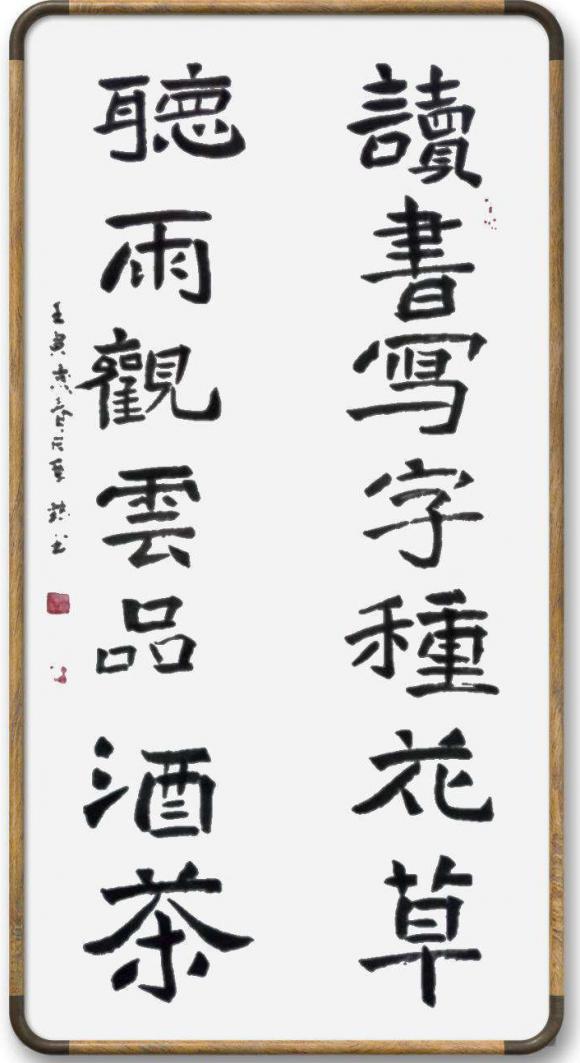 讀書寫字種花草
聽雨觀雲品酒茶
壬寅